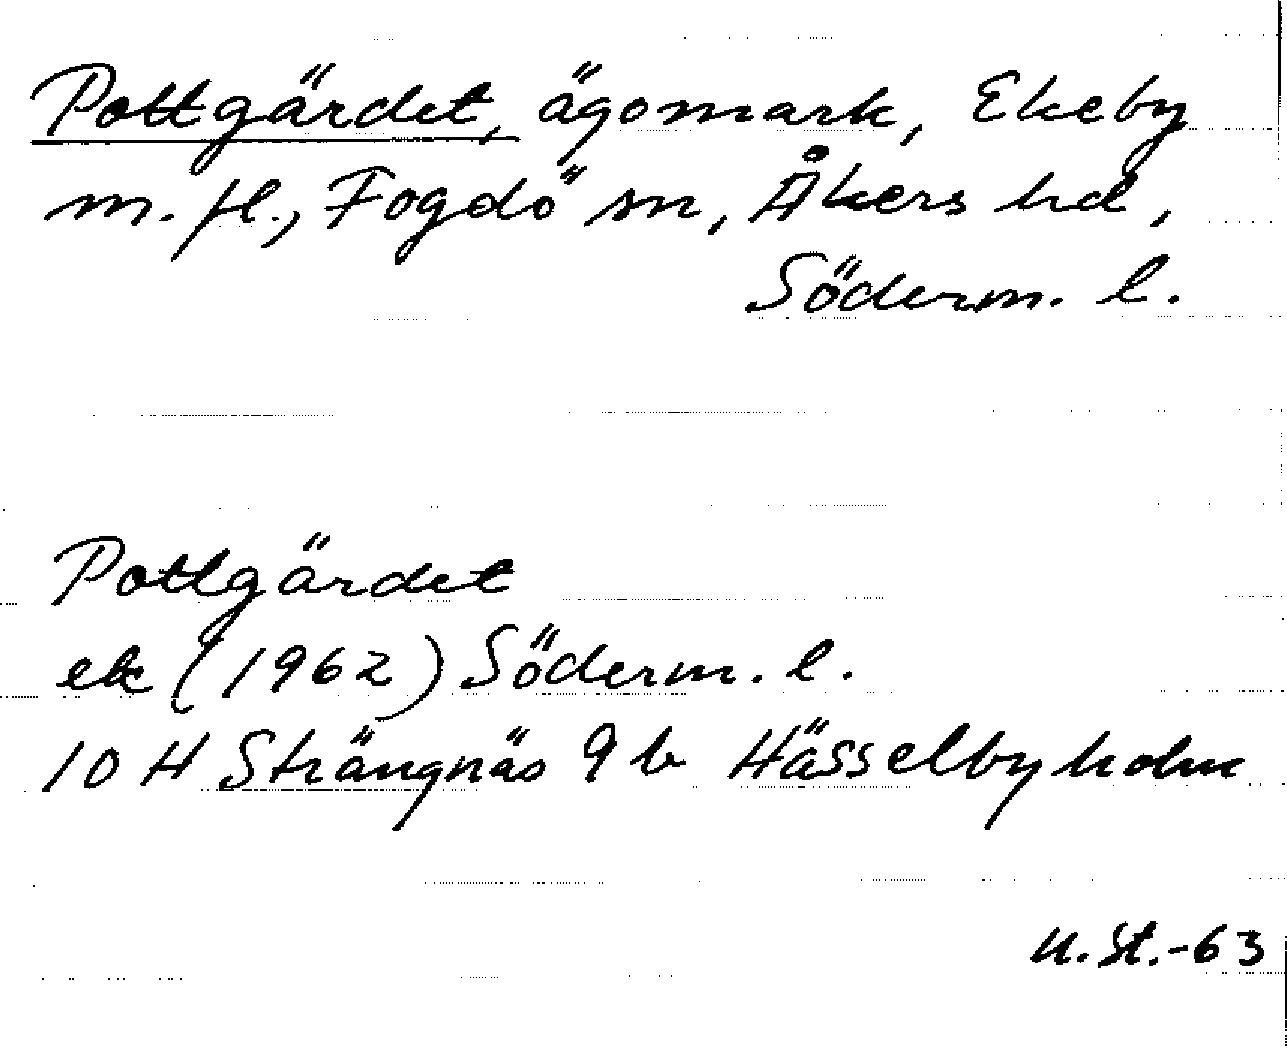 Pottgärdet, ägomark, Ekeby
m. fl., Fogdö sn, Åkers hd,
Söderm. l.
Pottgärdet
ek (1962) Söderm. l.
10 H Strängnäs 9 b Hässelbyholm
U. St. -63